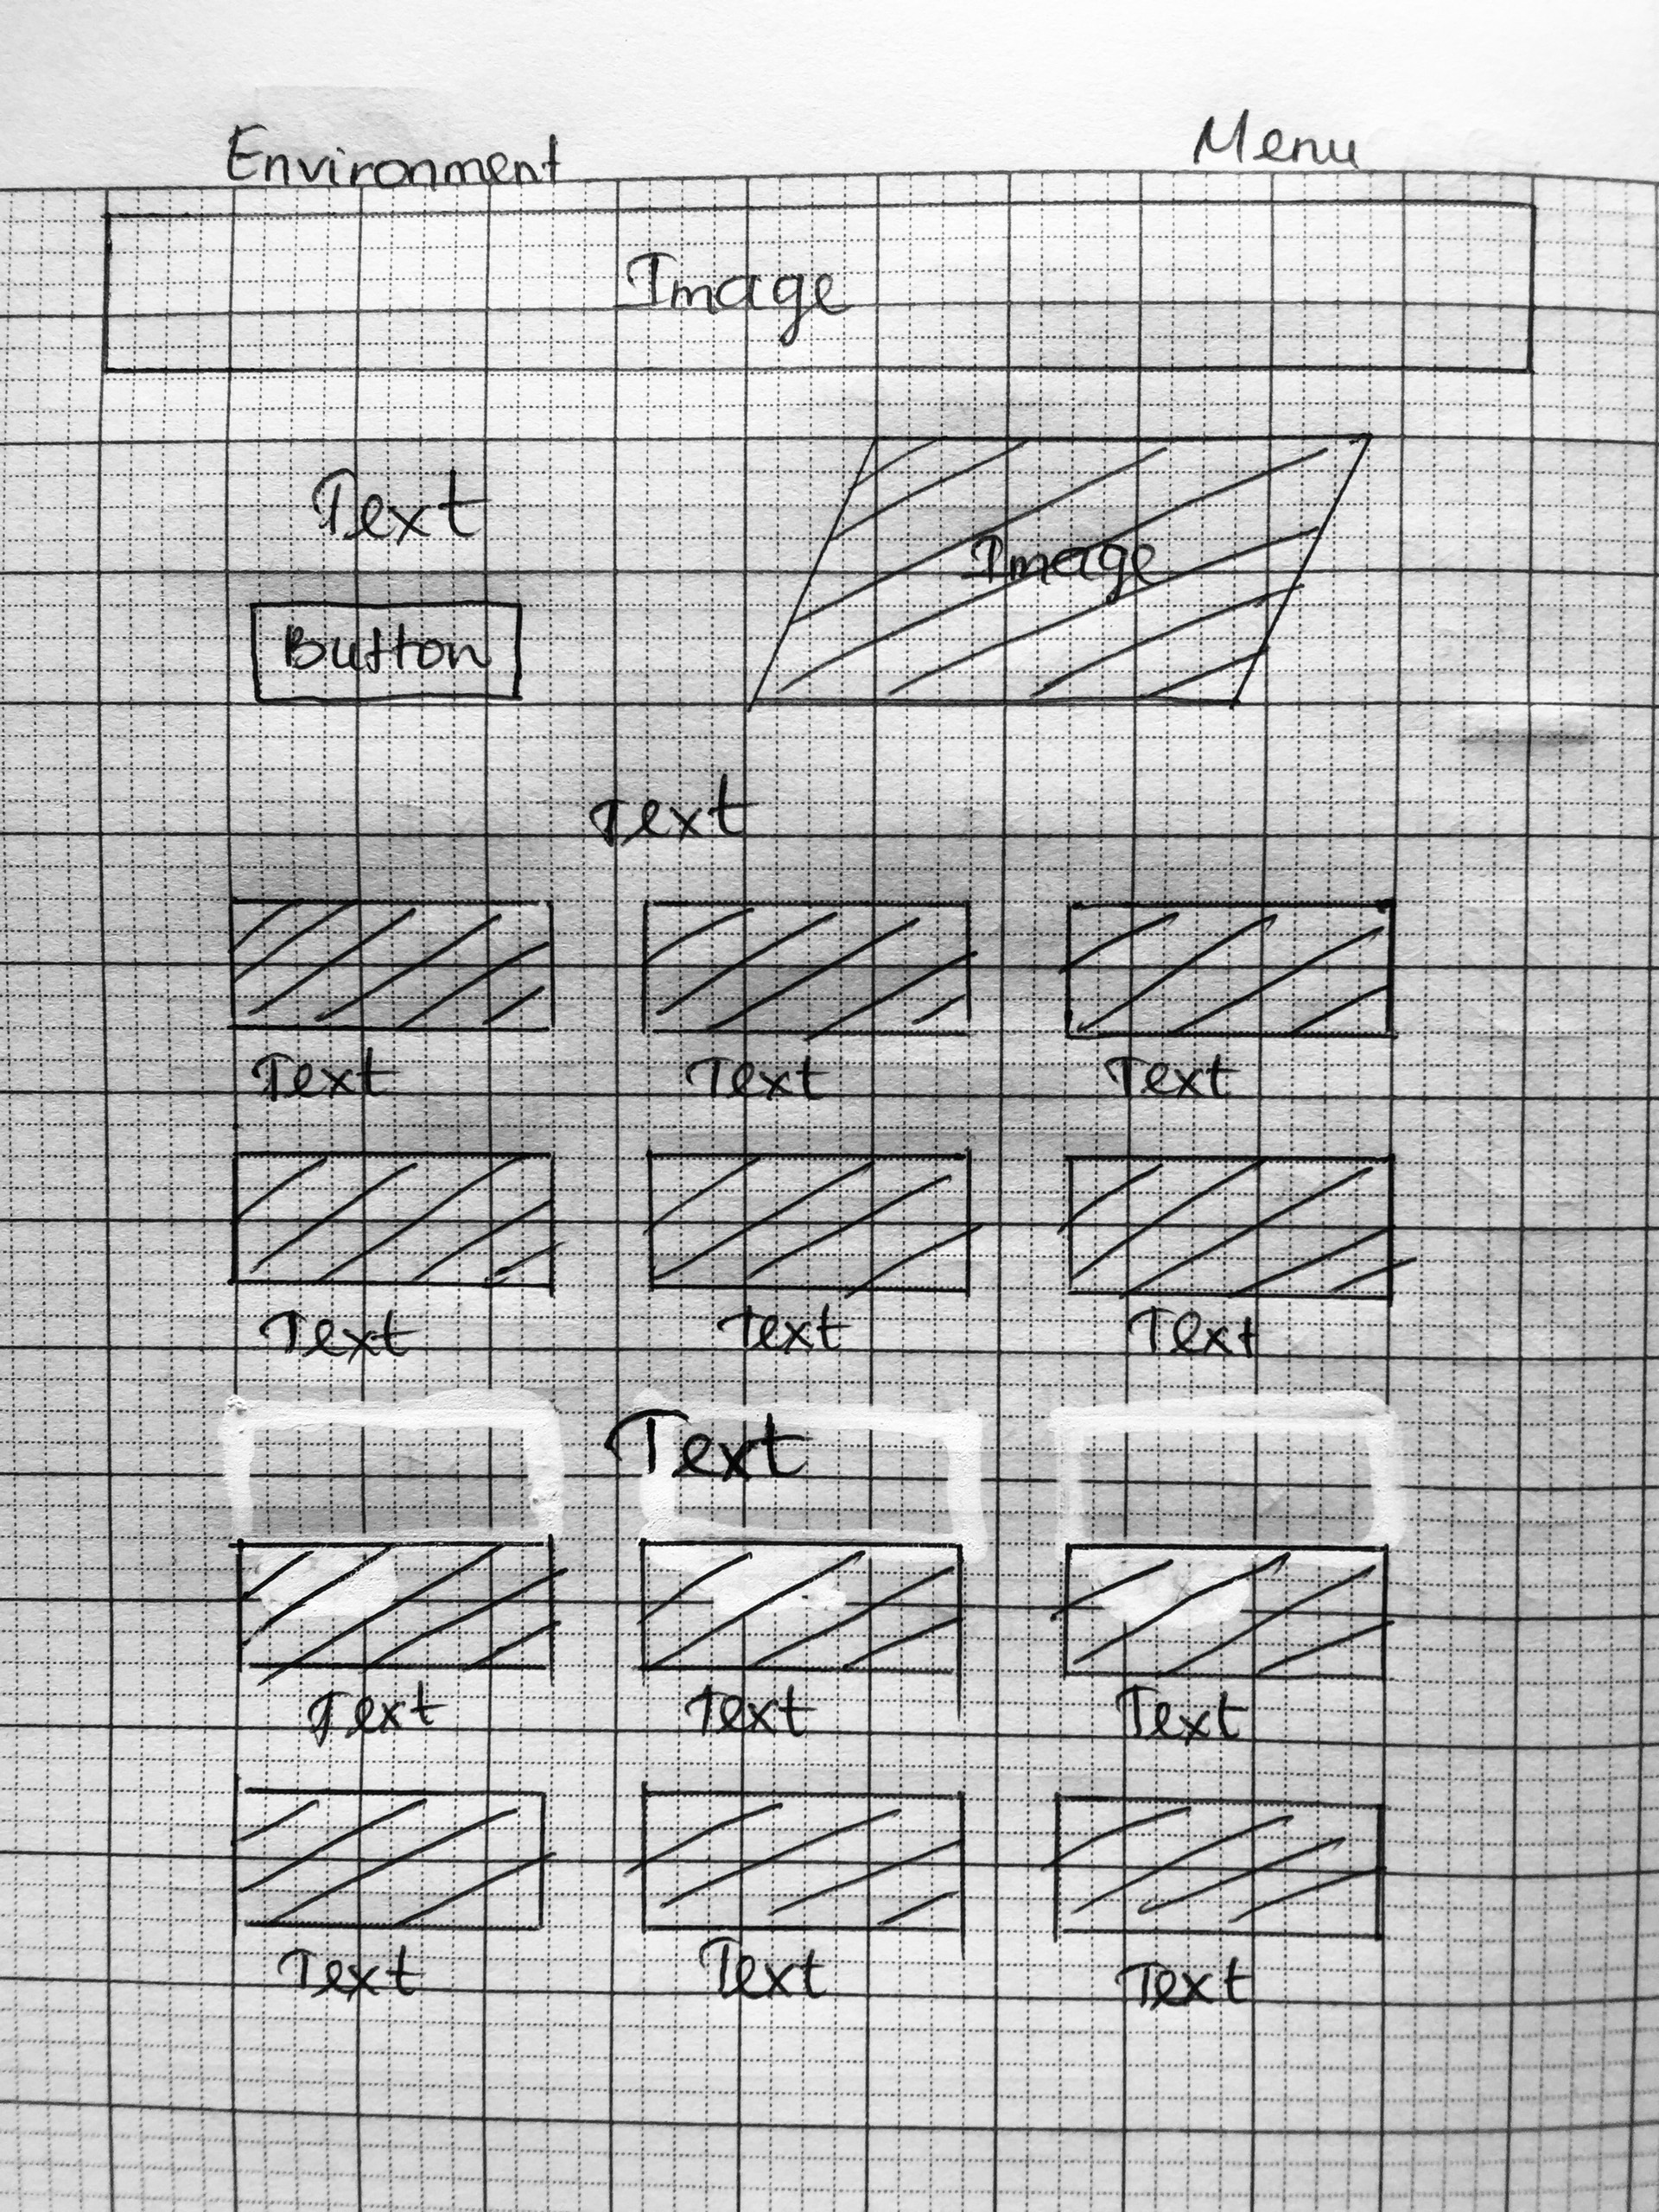 Environment Menu
Image
Text
Image
Button
Text
Text Text Text
Text Text Text
Text
Text Text Text
Text Text Text